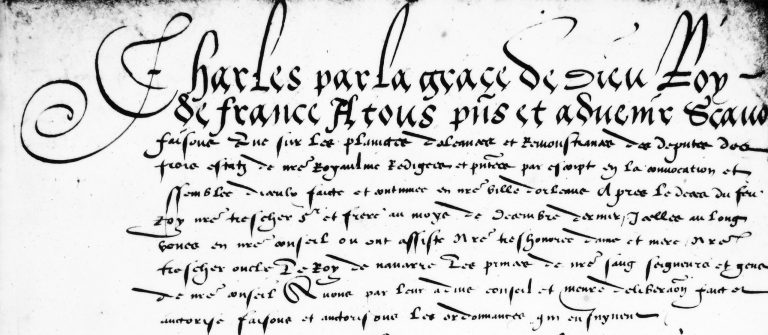 Charles par la grace de Dieu Roy
de france A tous pns et advenir Scavo
faisons Que sur les plainctes doleances et Remonstrances des deputes des
trois estatz de nre Royaulme Redigees et pntees par escript en la convocation et
ssemblee diceulx faicte et continuee en nre ville dorleans Apres le deces du feu
Roy nre trescher sr et frere au moys de decembre dernier Icelles au long
veues en nre conseil ou ont assiste nre treshonoree dame et mere Nre
trescher oncle Le Roy de navarre Les princes de nre sang seigneurs et gens
de nre conseil Avons par leur advis conseil et meure deliberaon faict et
auctorise faisons et auctorisons Les ordonnances qui ensuyvent